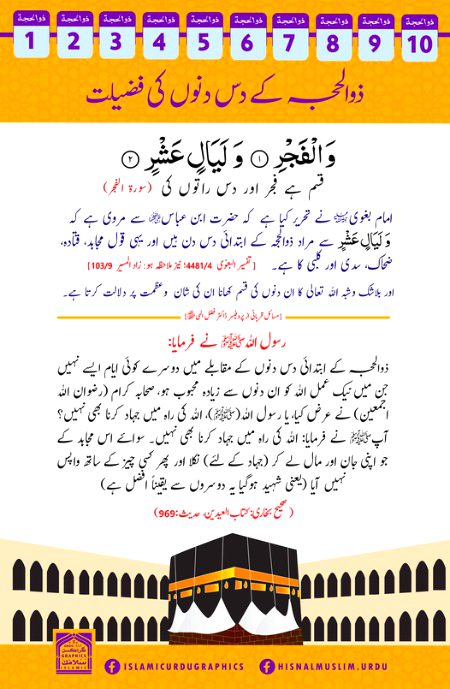 ذوالحجة ذوالحجة ذوالحجة ذوالحجة ذوالحجة ذوالحجة ذوالحجة ذوالحجة ذوالحجة ذوالحجة
1 2 3 4 5 6 7 8 9 10
ذوالحجہ کے دس دنوں کی فضیلت
وَالْفَجْرِ ۝۱ وَ لَيَالٍ عَشْرٍ ۝۲
قسم ہے فجر اور دس راتوں کی (سورۃ الفجر)
امام بغوی نے تحریر کیا ہے کہ حضرت ابن عباس سے مروی ہے کہ
وَ لَيَالٍ عَشْرٍ سے مراد ذوالحجہ کے ابتدائی دس دن ہیں اور یہی قول مجاہد، قتادہ،
ضحاک، سدی اور کلبی کا ہے۔ [تفسیر البغوی 4481/4؛ نیز ملاحظہ ہو: زاد المسیر 103/9]
اور بلاشک وشبہ اللہ تعالی کا ان دنوں کی قسم کھانا ان کی شان وعظمت پر دلالت کرتا ہے۔
[مسائل قربانی از پروفیسر ڈاکٹر فضل الہی]
رسول اللہ ﷺ نے فرمایا:
ذوالحجہ کے ابتدائی دس دنوں کے مقابلے میں دوسرے کوئی ایام ایسے نہیں
جن میں نیک عمل اللہ کو ان دنوں سے زیادہ محبوب ہو، صحابہ کرام (رضوان اللہ
اجمعین) نے عرض کیا، یا رسول اللہ (ﷺ)، اللہ کی راہ میں جہاد کرنا بھی نہیں؟
آپ ﷺ نے فرمایا: اللہ کی راہ میں جہاد کرنا بھی نہیں۔ سوائے اس مجاہد کے
جو اپنی جان اور مال لے کر (جہاد کے لئے) نکلا اور پھر کسی چیز کے ساتھ واپس
نہیں آیا (یعنی شہید ہوگیا یہ دوسروں سے یقیناً افضل ہے)
(صحیح بخاری: کتاب العیدین، حدیث: 969)
GRAPHICS
ISLAMIC
ISLAMICURDUGRAPHICS HISNALMUSLIM.URDU